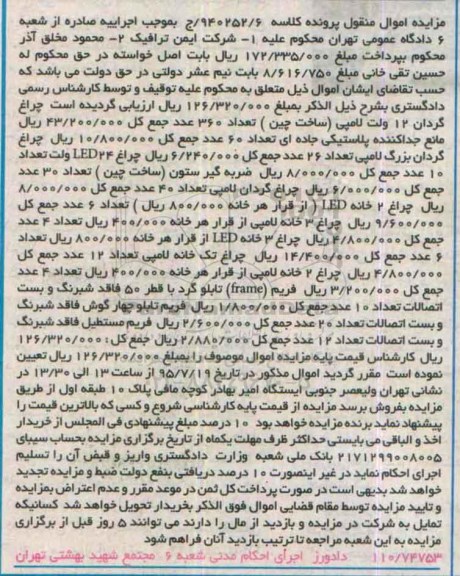 مزایده اموال منقول پرونده کلاسه ۹۴۰۲۵۲/۶/ج بموجب اجراییه صادره از شعبه
۶ دادگاه عمومی تهران محکوم علیه ۱- شرکت ایمن ترافیک ۲- محمود مخلق آذر
محکوم بپرداخت مبلغ ۱۷۲/۳۳۵/۰۰۰ ریال بابت اصل خواسته در حق محکوم له
حسین تقی خانی مبلغ ۸/۶۱۶/۷۵۰ بابت نیم عشر دولتی در حق دولت می باشد که
حسب تقاضای ایشان اموال ذیل متعلق به محکوم علیه توقیف و توسط کارشناس رسمی
دادگستری بشرح ذیل الذکر بمبلغ ۱۲۶/۳۲۰/۰۰۰ ریال ارزیابی گردیده است چراغ
گردان ۱۲ ولت لامپی (ساخت چین ) تعداد ۳۶۰ عدد جمع کل ۴۳/۲۰۰/۰۰۰ ریال
مانع جداکننده پلاستیکی جاده ای تعداد ۶۰ عدد جمع کل ۱۰/۸۰۰/۰۰۰ ریال چراغ
گردان بزرگ لامپی تعداد ۲۶ عدد جمع کل ۶/۲۴۰/۰۰۰ ریال چراغ LED۲۴ ولت تعداد
۱۰ عدد جمع کل ۸/۰۰۰/۰۰۰ ریال ضربه گیر ستون (ساخت چین ) تعداد ۳۰ عدد
جمع کل ۶/۰۰۰/۰۰۰ ریال چراغ گردان لامپی تعداد ۴۰ عدد جمع کل ۸/۰۰۰/۰۰۰
ریال چراغ ۲ خانه LED ( از قرار هر خانه ۸۰۰/۰۰۰ ریال ) تعداد ۶ عدد جمع کل
۹/۶۰۰/۰۰۰ ریال چراغ ۳ خانه لامپی از قرار هر خانه ۴۰۰/۰۰۰ ریال تعداد ۴ عدد
جمع کل ۴/۸۰۰/۰۰۰ ریال چراغ ۳ خانه LED از قرار هر خانه ۸۰۰/۰۰۰ ریال تعداد
۶ عدد جمع کل ۱۴/۴۰۰/۰۰۰ ریال چراغ تک خانه لامپی تعداد ۱۲ عدد جمع کل
۴/۸۰۰/۰۰۰ ریال چراغ ۲ خانه لامپی از قرار هر خانه ۴۰۰/۰۰۰ ریال تعداد ۴ عدد
جمع کل ۳/۲۰۰/۰۰۰ ریال فریم (frame) تابلو گرد با قطر ۵۰ فاقد شبرنگ و بست
اتصالات تعداد ۱۰ عدد جمع کل ۱/۸۰۰/۰۰۰ ریال فریم تابلو چهار گوش فاقد شبرنگ
و بست اتصالات تعداد ۲۰ عدد جمع کل ۲/۶۰۰/۰۰۰ ریال فریم مستطیل فاقد شبرنگ
و بست اتصالات تعداد ۱۲ عدد جمع کل ۲/۸۸۰/۰۰۰ ریال جمع کل : ۱۲۶/۳۲۰/۰۰۰
ریال کارشناس قیمت پایه مزایده اموال موصوف را بمبلغ ۱۲۶/۳۲۰/۰۰۰ ریال تعیین
نموده است مقرر گردید اموال مذکور در تاریخ ۹۵/۷/۱۹ از ساعت ۱۳ الی ۱۳/۳۰ در
نشانی تهران ولیعصر جنوبی ایستگاه امیر بهادر کوچه مافی پلاک ۱۰ طبقه اول از طریق
مزایده بفروش برسد مزایده از قیمت پایه کارشناسی شروع و کسی که بالاترین قیمت را
پیشنهاد نماید برنده مزایده خواهد بود ۱۰ درصد مبلغ پیشنهادی فی المجلس از خریدار
اخذ و الباقی می بایستی حداکثر ظرف مهلت یکماه از تاریخ برگزاری مزایده بحساب سیبای
۲۱۷۱۲۹۹۰۰۸۰۰۵ بانک ملی شعبه وزارت دادگستری واریز و قبض آن را تسلیم
اجرای احکام نماید در غیر اینصورت ۱۰ درصد دریافتی بنفع دولت ضبط و مزایده تجدید
خواهد شد بدیهی است در صورت پرداخت کل ثمن در موعد مقرر و عدم اعتراض بمزایده
و تایید مزایده توسط مقام قضایی اموال فوق الذکر بخریدار تحویل خواهد شد کسانیکه
تمایل به شرکت در مزایده و بازدید از مال را دارند می توانند ۵ روز قبل از برگزاری
مزایده به این شعبه مراجعه تا ترتیب بازدید آنان فراهم شود
۱۱۰/۷۴۷۵۳ دادورز اجرای احکام مدنی شعبه ۶ مجتمع شهید بهشتی تهران